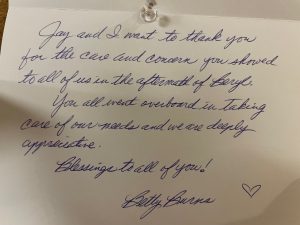 Jay and I want to thank you
for the care and concern you showed
to all of us in the aftermath of Beryl.
You all went overboard in taking
care of our needs and we are deeply
appreciative.
Blessings to all of you!
Betty Burns